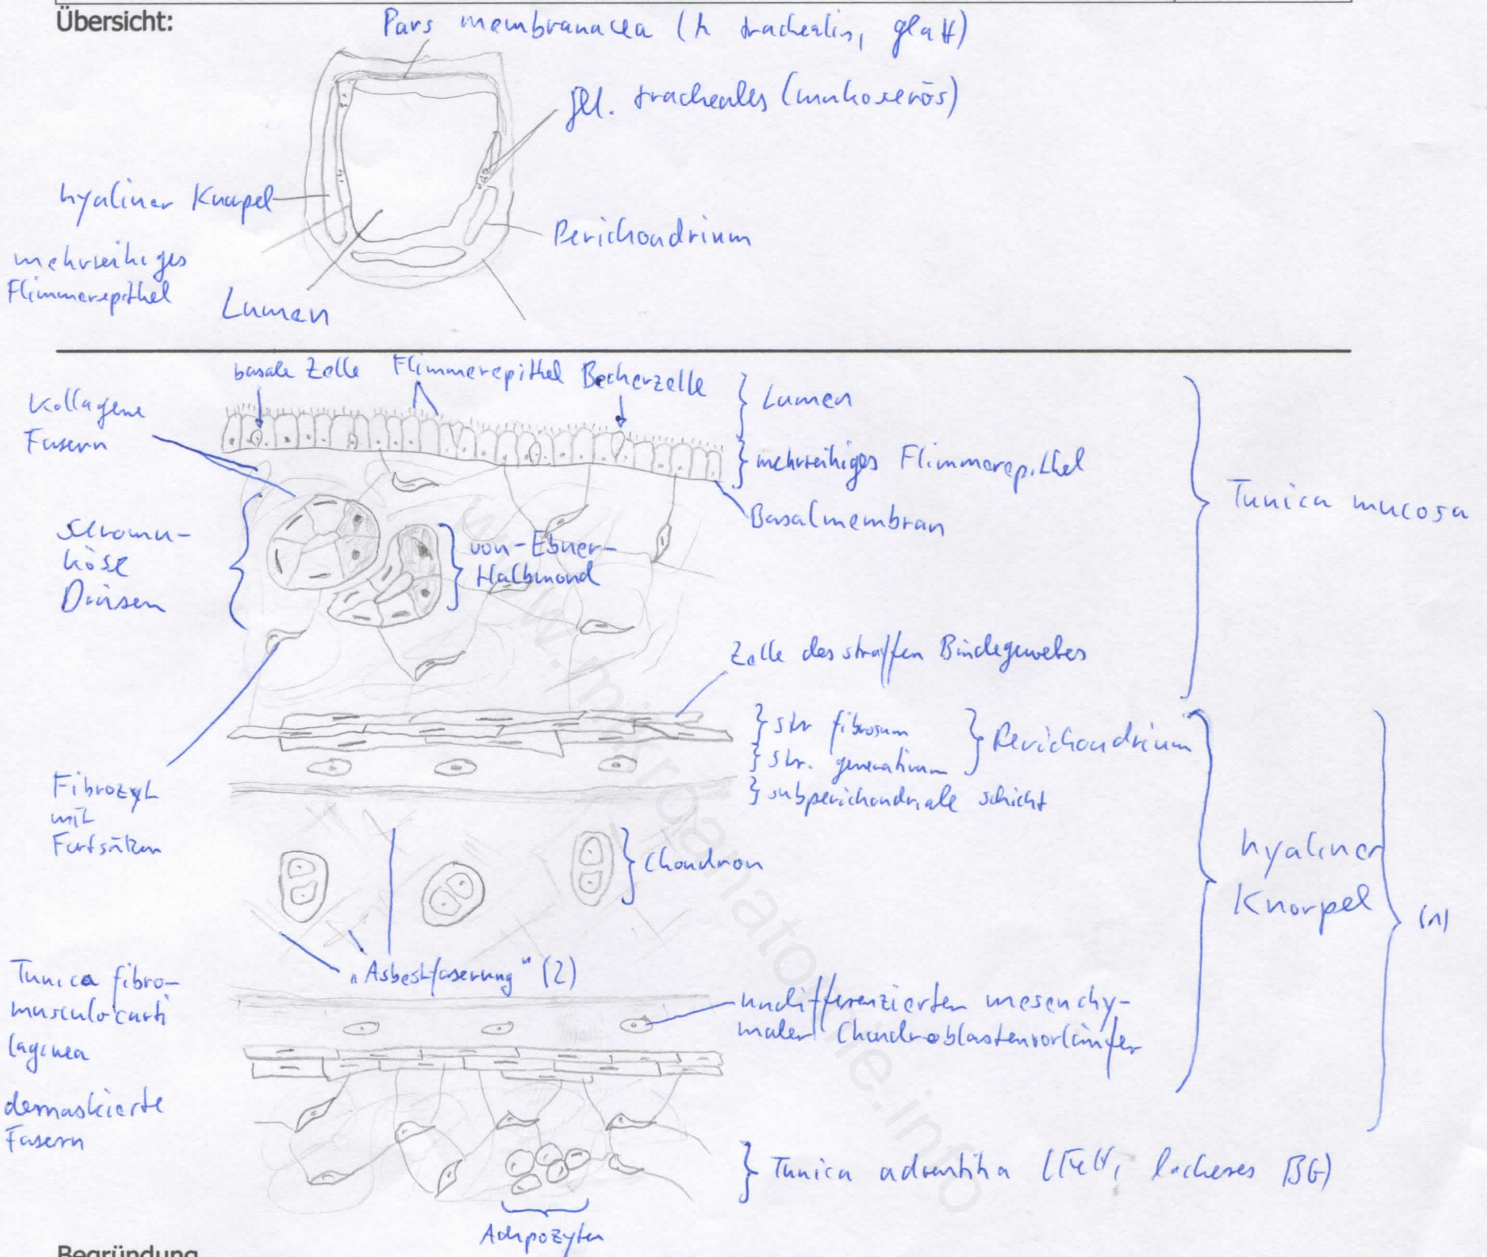 Übersicht:
Pars membranacea (h trachealis, glatt)
gll. tracheales (mukoserös)
hyaliner Knorpel
Perichondrium
mehrreihiges
Flimmerepithel
Lumen
basale Zelle
Flimmerepithel
Becherzelle
Lumen
Kollagene
Fasern
mehrreihiges Flimmerepithel
Tunica mucosa
Basalmembran
seromu-
köse
Drüsen
von-Ebner-
Halbmond
Zelle des straffen Bindegewebes
str fibrosum
Perichondrium
str. generativum
subperichondriale schicht
Fibrozyt
mit
Fortsätzen
Chondron
hyaliner
Knorpel
(1)
„Asbestfaserung" (2)
Tunica fibro-
musculocarti
laginea
undifferenzierten mesenchy-
maler Chondroblastenvorläufer
demaskierte
Fasern
Tunica adventitia (Fett, lockeres BG)
Adipozyten
Begründung
www.mikroanatomie.info